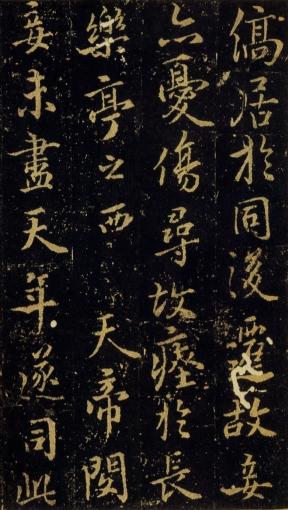 謫居於同後遷故妾
亦憂傷尋故瘞於長
樂亭之西 天帝閔
妾未盡天年遂司此